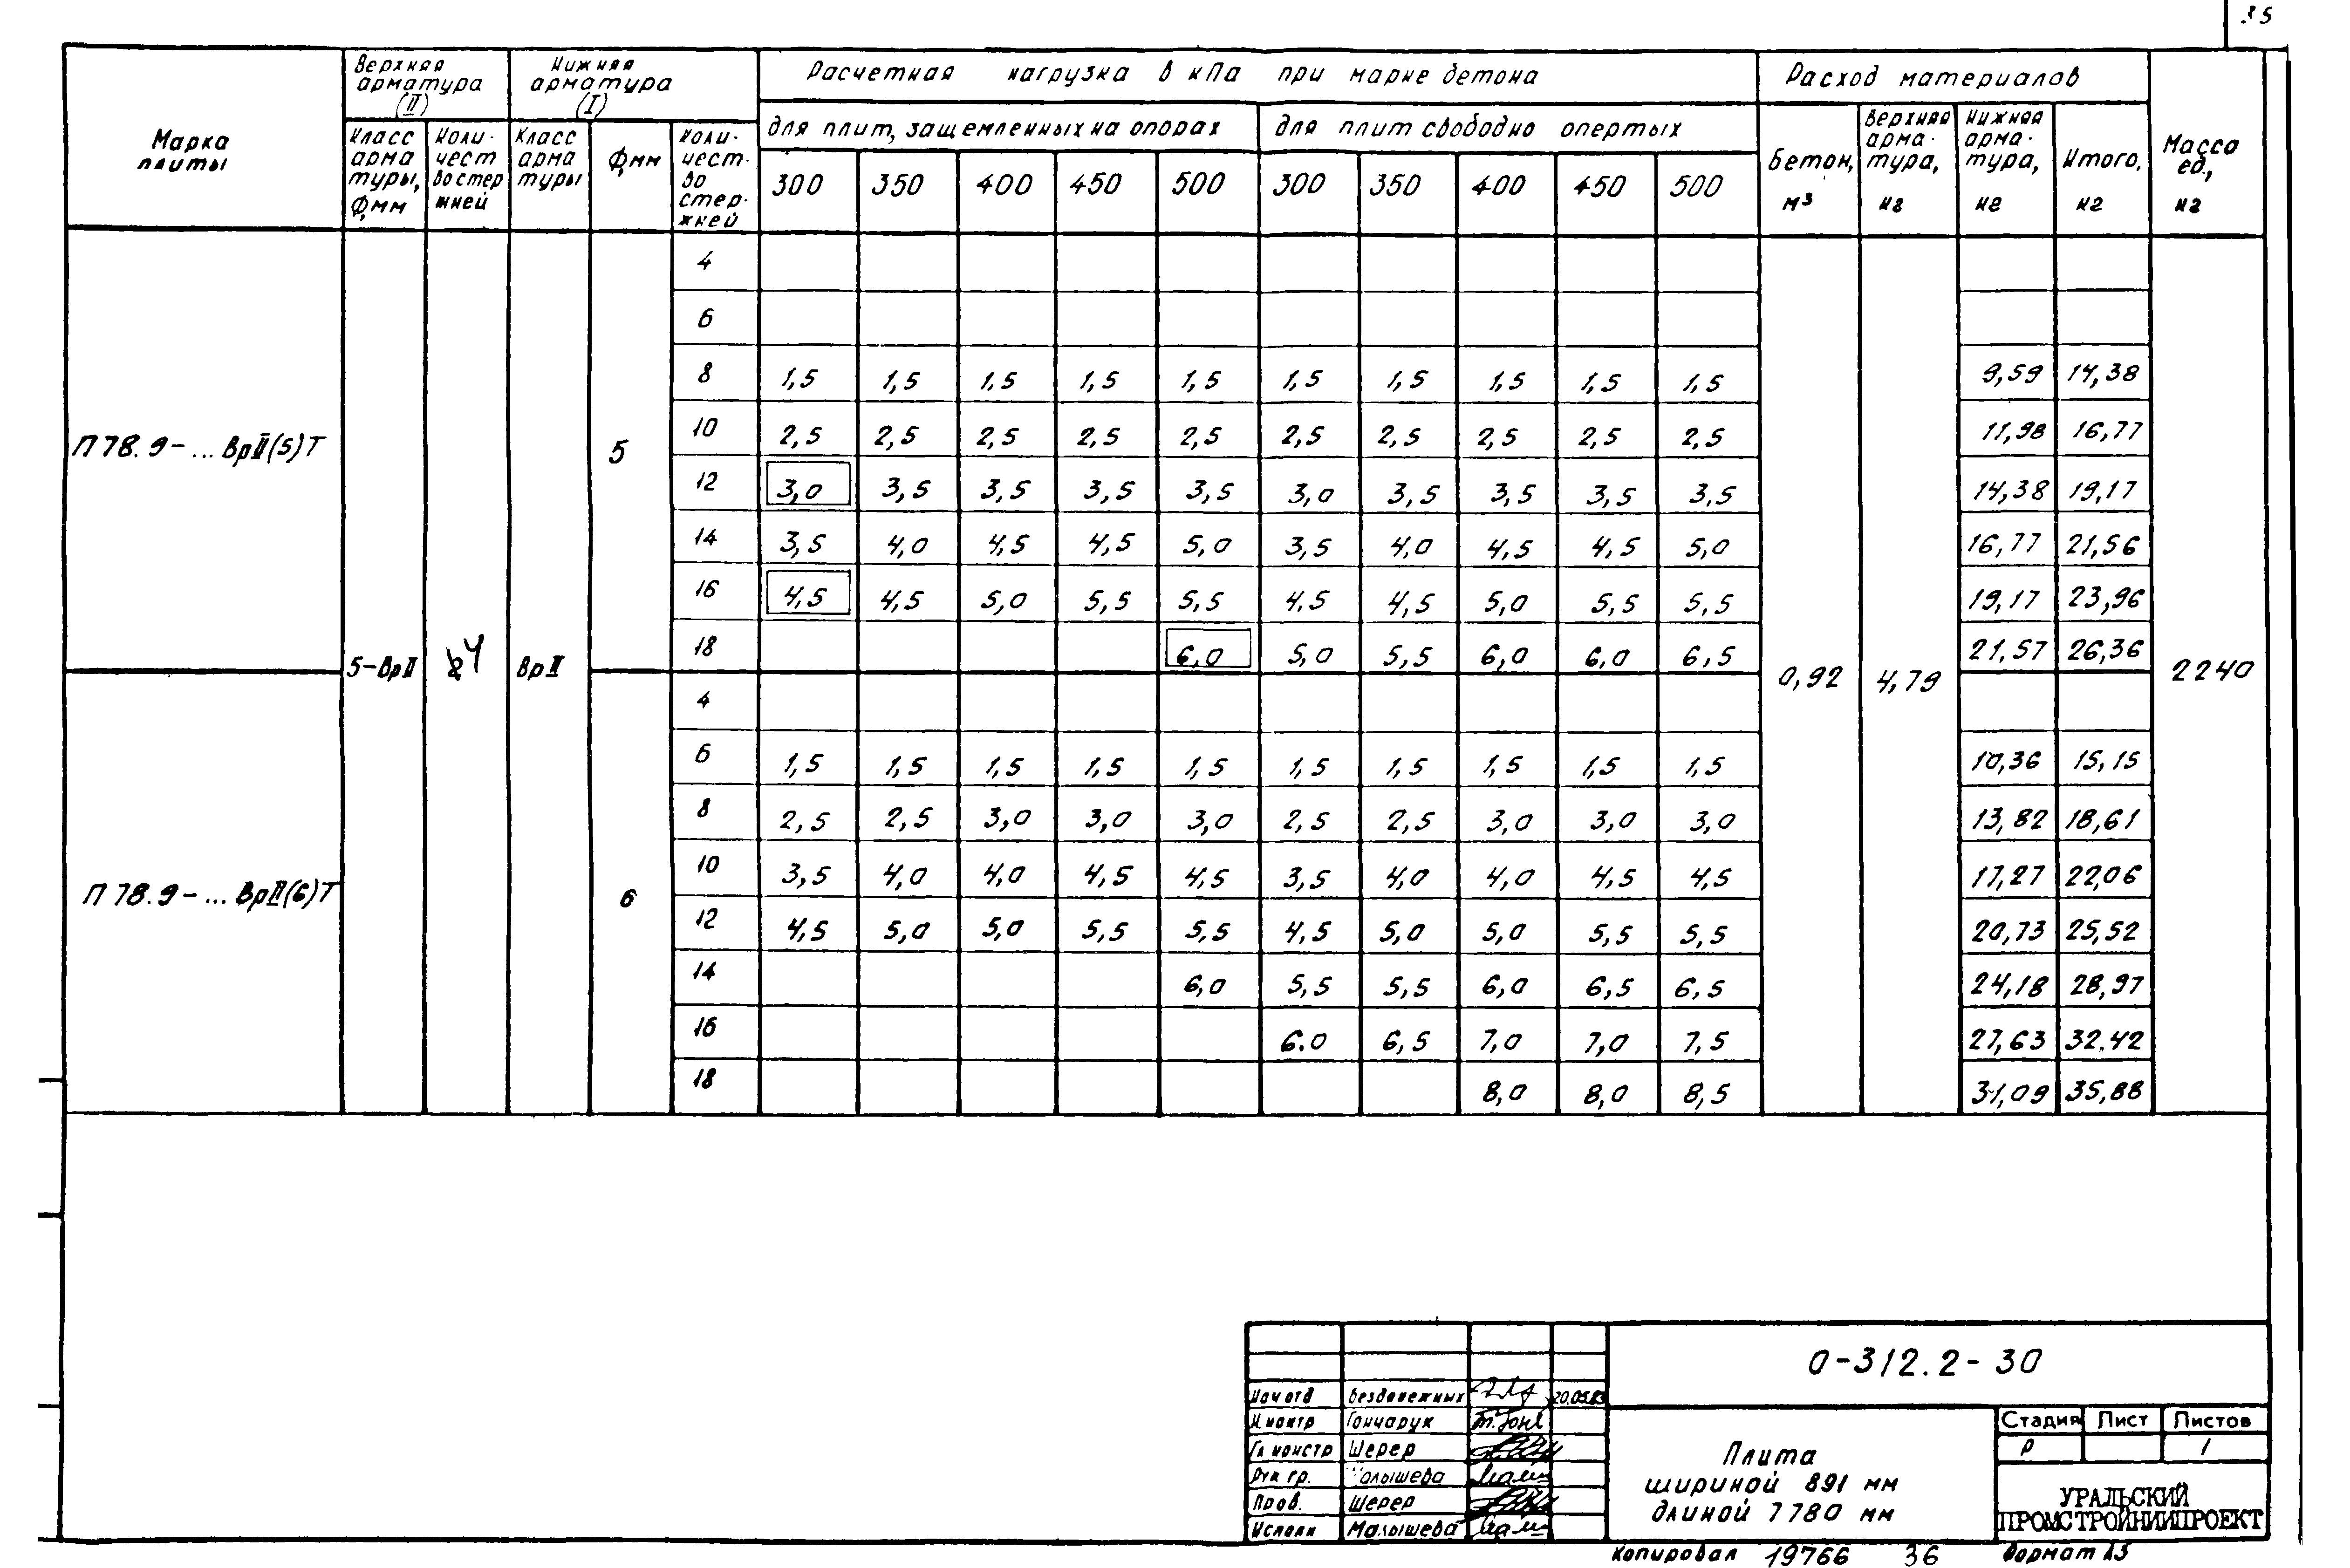 35
Марка плиты
Верхняя арматура (II)
Нижняя арматура (I)
Расчетная нагрузка в кПа при марке бетона
Расход материалов
Масса ед., кг
Класс арматуры, Ф,мм
Количест во стержней
Класс арматуры
Ф,мм
Количество стержней
для плит, защемленных на опорах
для плит свободно опертых
Бетон, м³
Верхняя арма-тура, кг
Нижняя арма-тура, кг
Итого, кг
300 350 400 450 500 300 350 400 450 500
4
6
8 1,5 1,5 1,5 1,5 1,5 1,5 1,5 1,5 1,5 1,5 9,59 14,38
П 78.9-...ВрII(5)Т 5
10 2,5 2,5 2,5 2,5 2,5 2,5 2,5 2,5 2,5 2,5 11,98 16,77
12 3,0 3,5 3,5 3,5 3,5 3,0 3,5 3,5 3,5 3,5 14,38 19,17
14 3,5 4,0 4,5 4,5 5,0 3,5 4,0 4,5 4,5 5,0 16,77 21,56
16 4,5 4,5 5,0 5,5 5,5 4,5 4,5 5,0 5,5 5,5 19,17 23,96
18 6,0 5,0 5,5 6,0 6,0 6,5 21,57 26,36
5-ВрII 4 ВрII 0,92 4,79 2240
4
6 1,5 1,5 1,5 1,5 1,5 1,5 1,5 1,5 1,5 1,5 10,36 15,15
8 2,5 2,5 3,0 3,0 3,0 2,5 2,5 3,0 3,0 3,0 13,82 18,61
10 3,5 4,0 4,0 4,5 4,5 3,5 4,0 4,0 4,5 4,5 17,27 22,06
П 78.9-...ВрII(6)Т 6
12 4,5 5,0 5,0 5,5 5,5 4,5 5,0 5,0 5,5 5,5 20,73 25,52
14 6,0 5,5 5,5 6,0 6,5 6,5 24,18 28,97
16 6.0 6,5 7,0 7,0 7,5 27,63 32.42
18 8,0 8,0 8,5 31,09 35,88
0-312.2-30
Нач отд Безденежных 20.05.83
Н контр Гончарук
Гл констр Шерер
Рук гр. Малышева
Пров. Шерер
Исполн Малышева
Плита
шириной 891 мм
длиной 7780 мм
Стадия Лист Листов
Р 1
УРАЛЬСКИЙ
ПРОМСТРОЙНИИПРОЕКТ
Копировал 19766 36 Формат А3